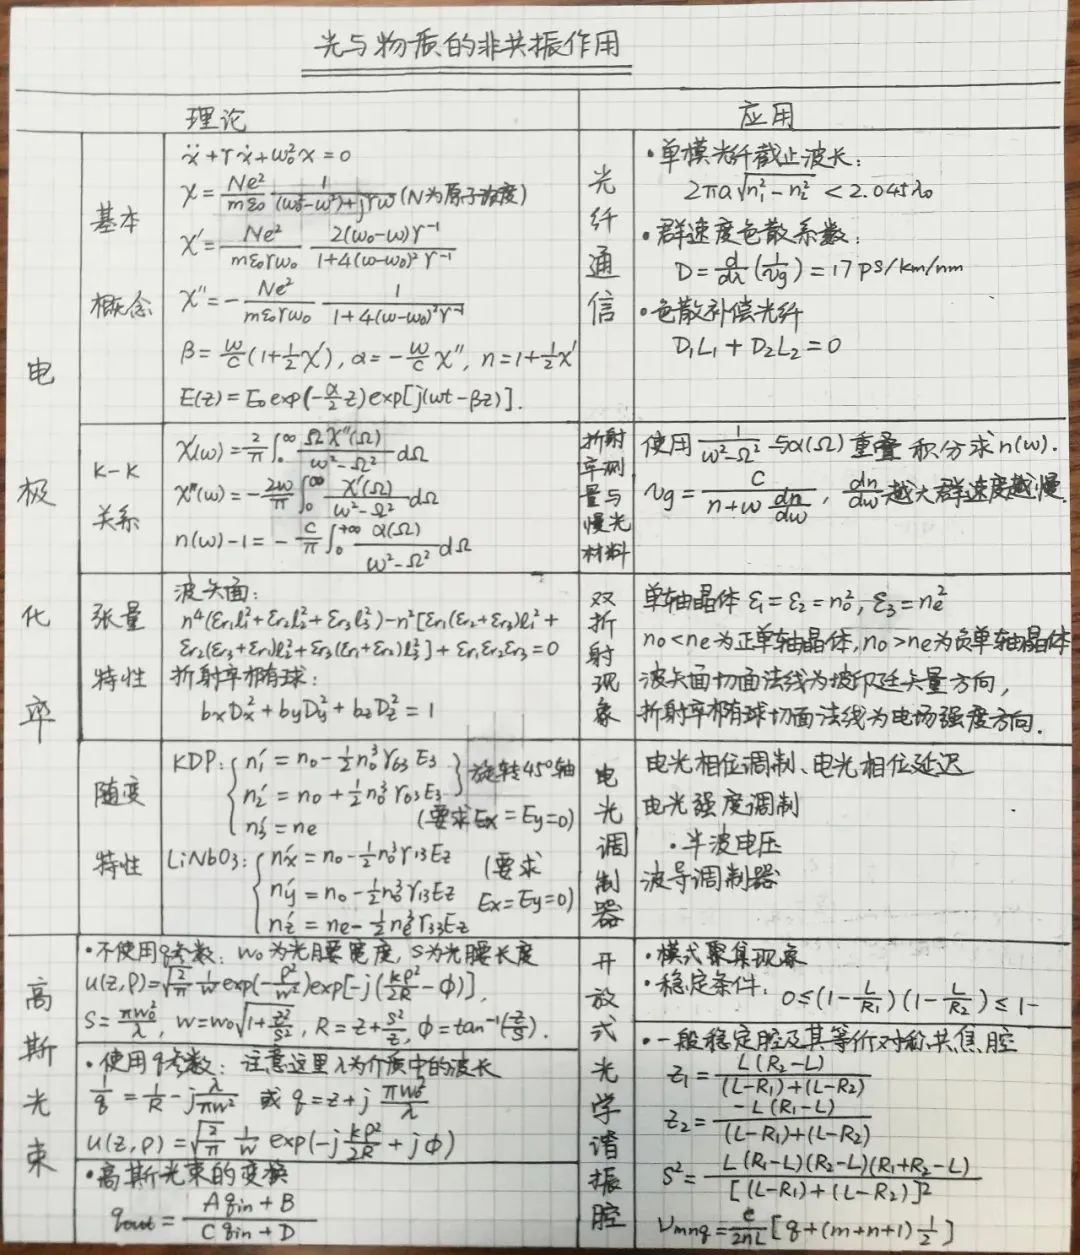 光与物质的非共振作用
理论
应用
电极化率
基本概念
ẍ+γẋ+ω₀²x=0
χ=Ne²/mε₀ · 1/((ω₀²-ω²)+jγω) (N为原子浓度)
χ′=Ne²/mε₀γω₀ · 2(ω₀-ω)γ⁻¹/(1+4(ω-ω₀)²γ⁻¹)
χ″=-Ne²/mε₀γω₀ · 1/(1+4(ω-ω₀)²γ⁻¹)
β=ω/c(1+½χ′), α=-ω/c χ″, n=1+½χ′
E(z)=E₀exp(-α/2 z)exp[j(ωt-βz)].
光纤通信
·单模光纤截止波长:
2πa√(n₁²-n₂²)<2.045λ₀
·群速度色散系数:
D=d/dλ(1/vg)=17ps/km/nm
·色散补偿光纤
D₁L₁+D₂L₂=0
K-K
关系
χ′(ω)=2/π∫₀^∞ Ωχ″(Ω)/(ω²-Ω²) dΩ
χ″(ω)=-2ω/π∫₀^∞ χ′(Ω)/(ω²-Ω²) dΩ
n(ω)-1=-c/π∫₀^+∞ α(Ω)/(ω²-Ω²) dΩ
折射率测量与慢光材料
使用1/(ω²-Ω²)与α(Ω)重叠积分求n(ω).
vg=c/(n+ω dn/dω), dn/dω越大群速度越慢
张量
特性
波矢面:
n⁴(εr₁l₁²+εr₂l₂²+εr₃l₃²)-n²[εr₁(εr₂+εr₃)l₁²+
εr₂(εr₃+εr₁)l₂²+εr₃(εr₁+εr₂)l₃²]+εr₁εr₂εr₃=0
折射率椭球:
bxDx²+byDy²+bzDz²=1
双折射现象
单轴晶体ε₁=ε₂=n₀², ε₃=ne²
n₀<ne为正单轴晶体,n₀>ne为负单轴晶体
波矢面切面法线为坡印廷矢量方向,
折射率椭球切面法线为电场强度方向.
随变
特性
KDP: n₁′=n₀-½n₀³γ₆₃E₃
n₂′=n₀+½n₀³γ₆₃E₃
n₃′=ne
旋转45°轴
(要求Ex=Ey=0)
LiNbO₃: nx′=n₀-½n₀³γ₁₃Ez
ny′=n₀-½n₀³γ₁₃Ez
nz′=ne-½ne³γ₃₃Ez
(要求
Ex=Ey=0)
电光调制器
电光相位调制、电光相位延迟
电光强度调制
·半波电压
波导调制器
高斯光束
·不使用q参数: w₀为光腰宽度, S为光腰长度
u(z,ρ)=√(2/π) 1/w exp(-ρ²/w²)exp[-j(kρ²/2R-ϕ)],
S=πw₀²/λ, w=w₀√(1+z²/S²), R=z+S²/z, ϕ=tan⁻¹(z/S).
·使用q参数: 注意这里λ为介质中的波长
1/q=1/R-jλ/πw² 或 q=z+j πw₀²/λ
u(z,ρ)=√(2/π) 1/w exp(-j kρ²/2R+jϕ)
·高斯光束的变换
qout=(Aqin+B)/(Cqin+D)
开放式光学谐振腔
·模式聚集现象
·稳定条件: 0≤(1-L/R₁)(1-L/R₂)≤1-
·一般稳定腔及其等价对称共焦腔
z₁=L(R₂-L)/((L-R₁)+(L-R₂))
z₂=-L(R₁-L)/((L-R₁)+(L-R₂))
S²=L(R₁-L)(R₂-L)(R₁+R₂-L)/[(L-R₁)+(L-R₂)]²
νmnq=c/2nL[q+(m+n+1)½]